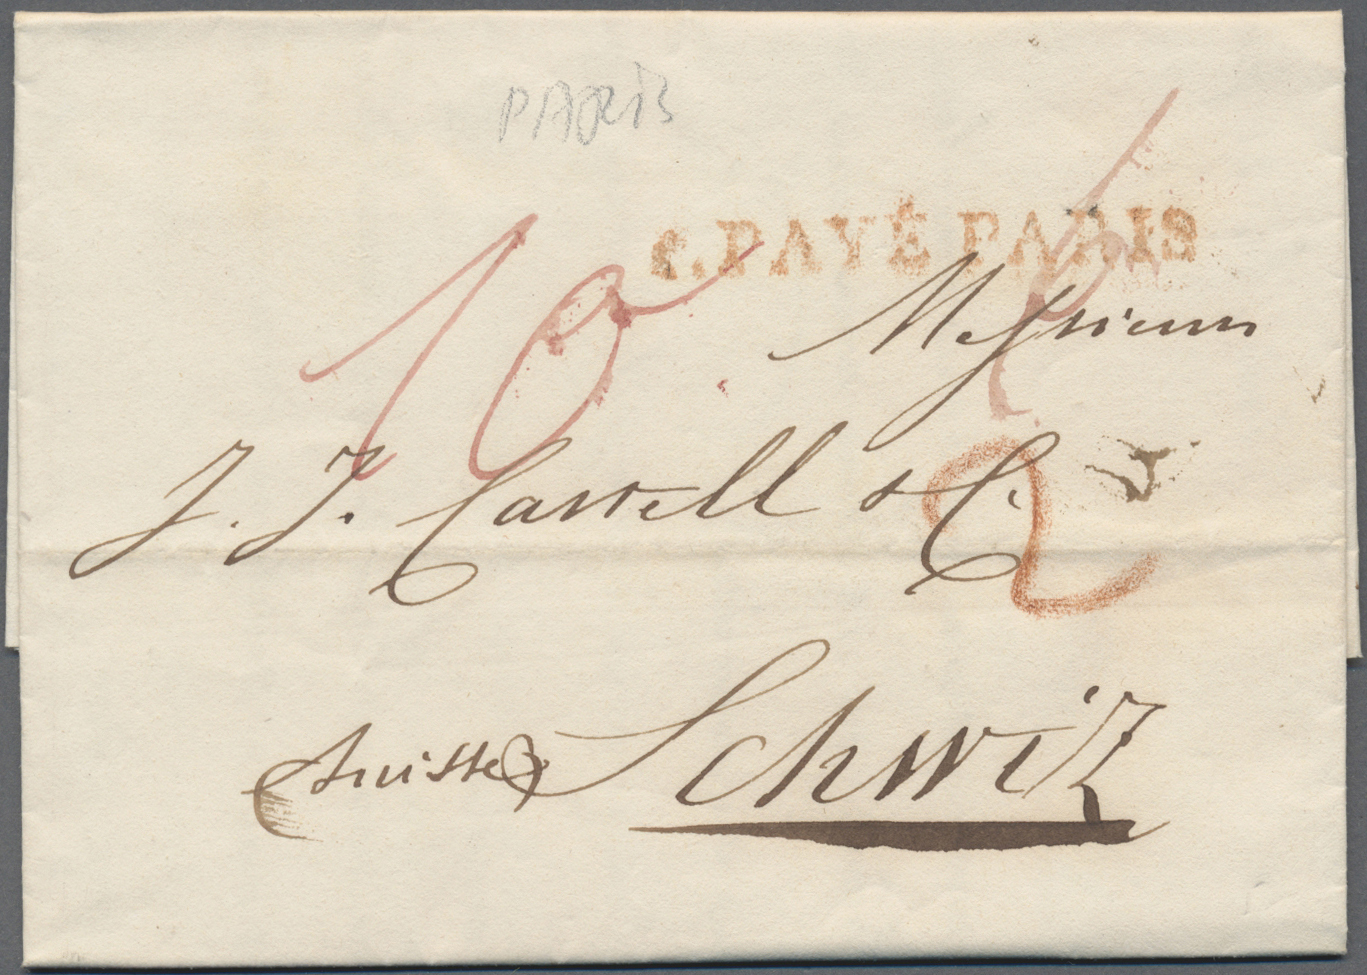 PARIS
f. PAYÉ PARIS
10
6
Messieurs
J. J. Castell & C.
2
Suisse Schwiz